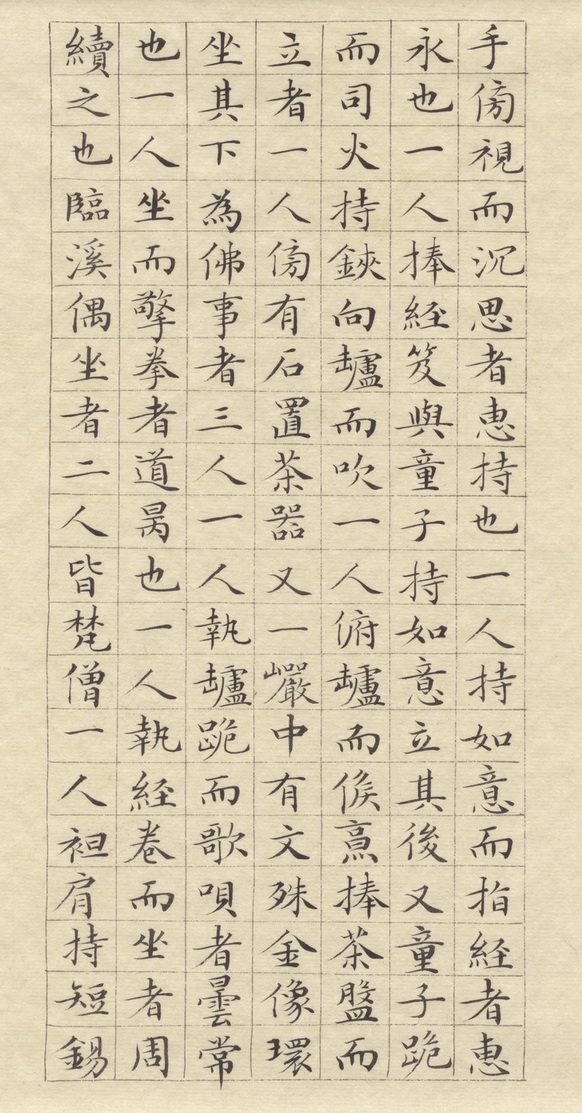 手傍視而沉思者惠持也一人持如意而指経者惠
永也一人捧経笈與童子持如意立其後又童子跪
而司火持鋏向罏而吹一人俯罏而俟熹捧茶盤而
立者一人傍有石置茶器又一巖中有文殊金像環
坐其下為佛事者三人一人執罏跪而歌唄者曇常
也一人坐而擎拳者道昺也一人執経卷而坐者周
續之也臨溪偶坐者二人皆梵僧一人袒肩持短錫